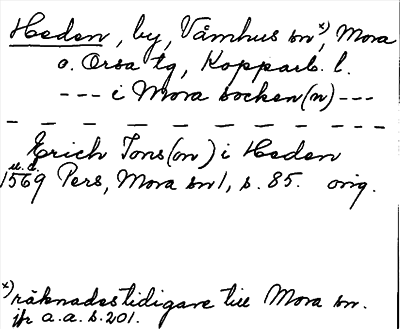 Heden, by, Våmhus sn x), Mora
o. Orsa tg, Kopparb. l.
--- i Mora socken(n) ---
Erich Jons(on) i Heden
u.å.
1569 Pers, Mora sn 1, s. 85. orig.
x) räknades tidigare till Mora sn.
jfr a.a. s. 201.